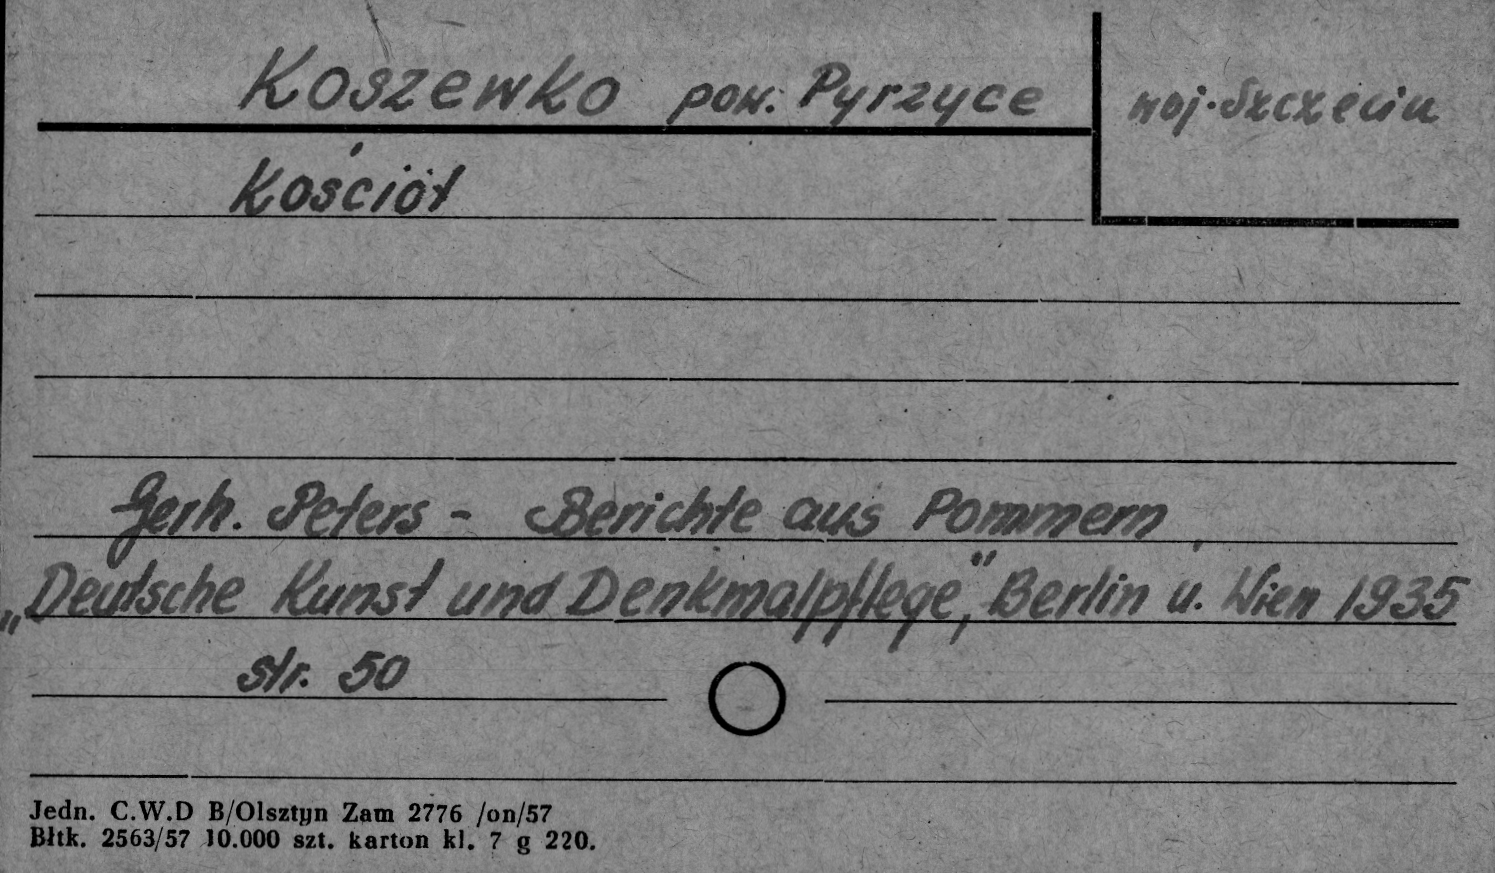 Koszewko pow. Pyrzyce
woj. Szczecin
Kościół
Gerh. Peters - Berichte aus Pommern,
„Deutsche Kunst und Denkmalpflege," Berlin u. Wien 1935
str. 50
Jedn. C.W.D B/Olsztyn Zam 2776 /on/57
Błtk. 2563/57 10.000 szt. karton kl. 7 g 220.